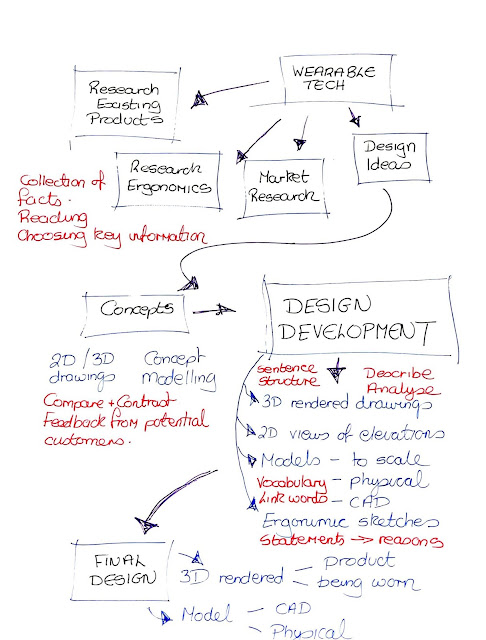 WEARABLE
TECH
Research
Existing
Products
Research
ERGONOMICS
Market
Research
Design
Ideas
Collection of
facts.
Reading
Choosing key information
Concepts
DESIGN
DEVELOPMENT
2D/3D Concept
drawings modelling
Compare + Contrast
Feedback from potential
customers.
Sentence
structure
Describe
Analyse
3D rendered drawings
2D views of elevations
Models - to scale
Vocabulary - physical
Link words - CAD
Ergonumic sketches
Statements → reasons
FINAL
DESIGN
3D rendered - product
- being worn
Model - CAD
- Physical